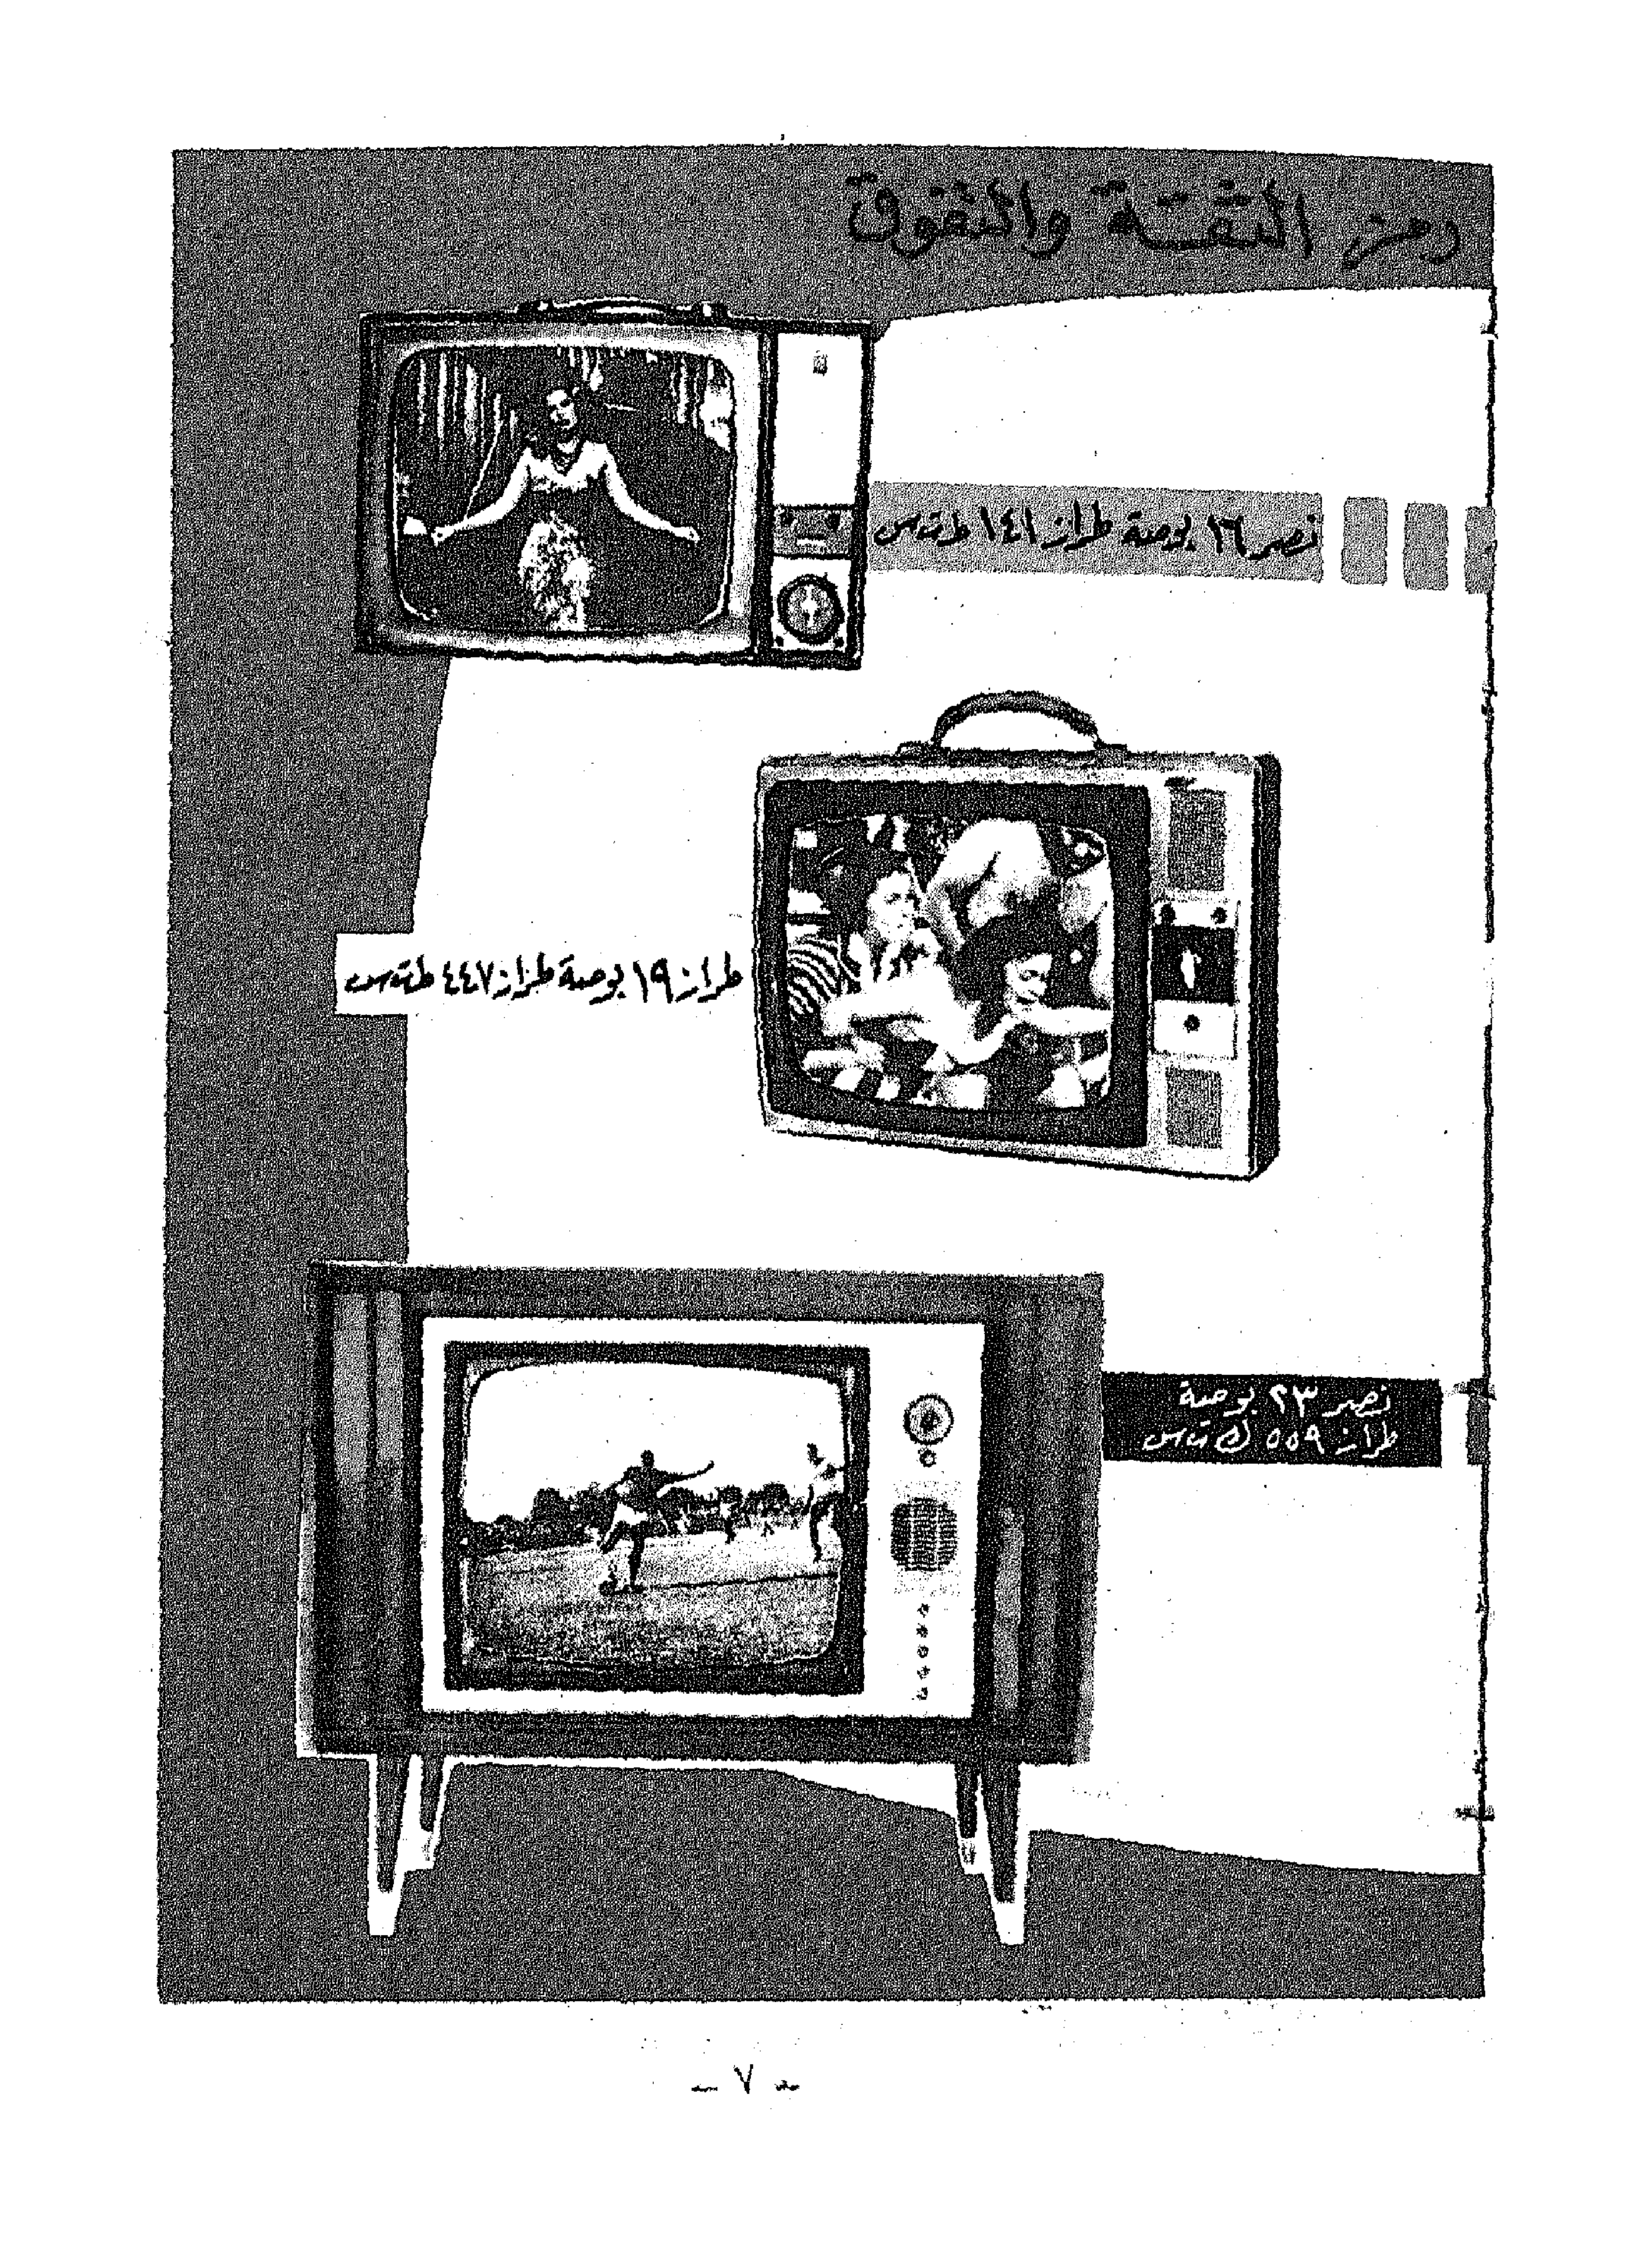 رمز الثقة والتفوق
نصر ١٦ بوصة طراز ١٤١ ط ت س
طراز ١٩ بوصة طراز ٤٤٧ ط ت س
نصر ٢٣ بوصة
طراز ٥٥٩ ك ت س
- ٧ -